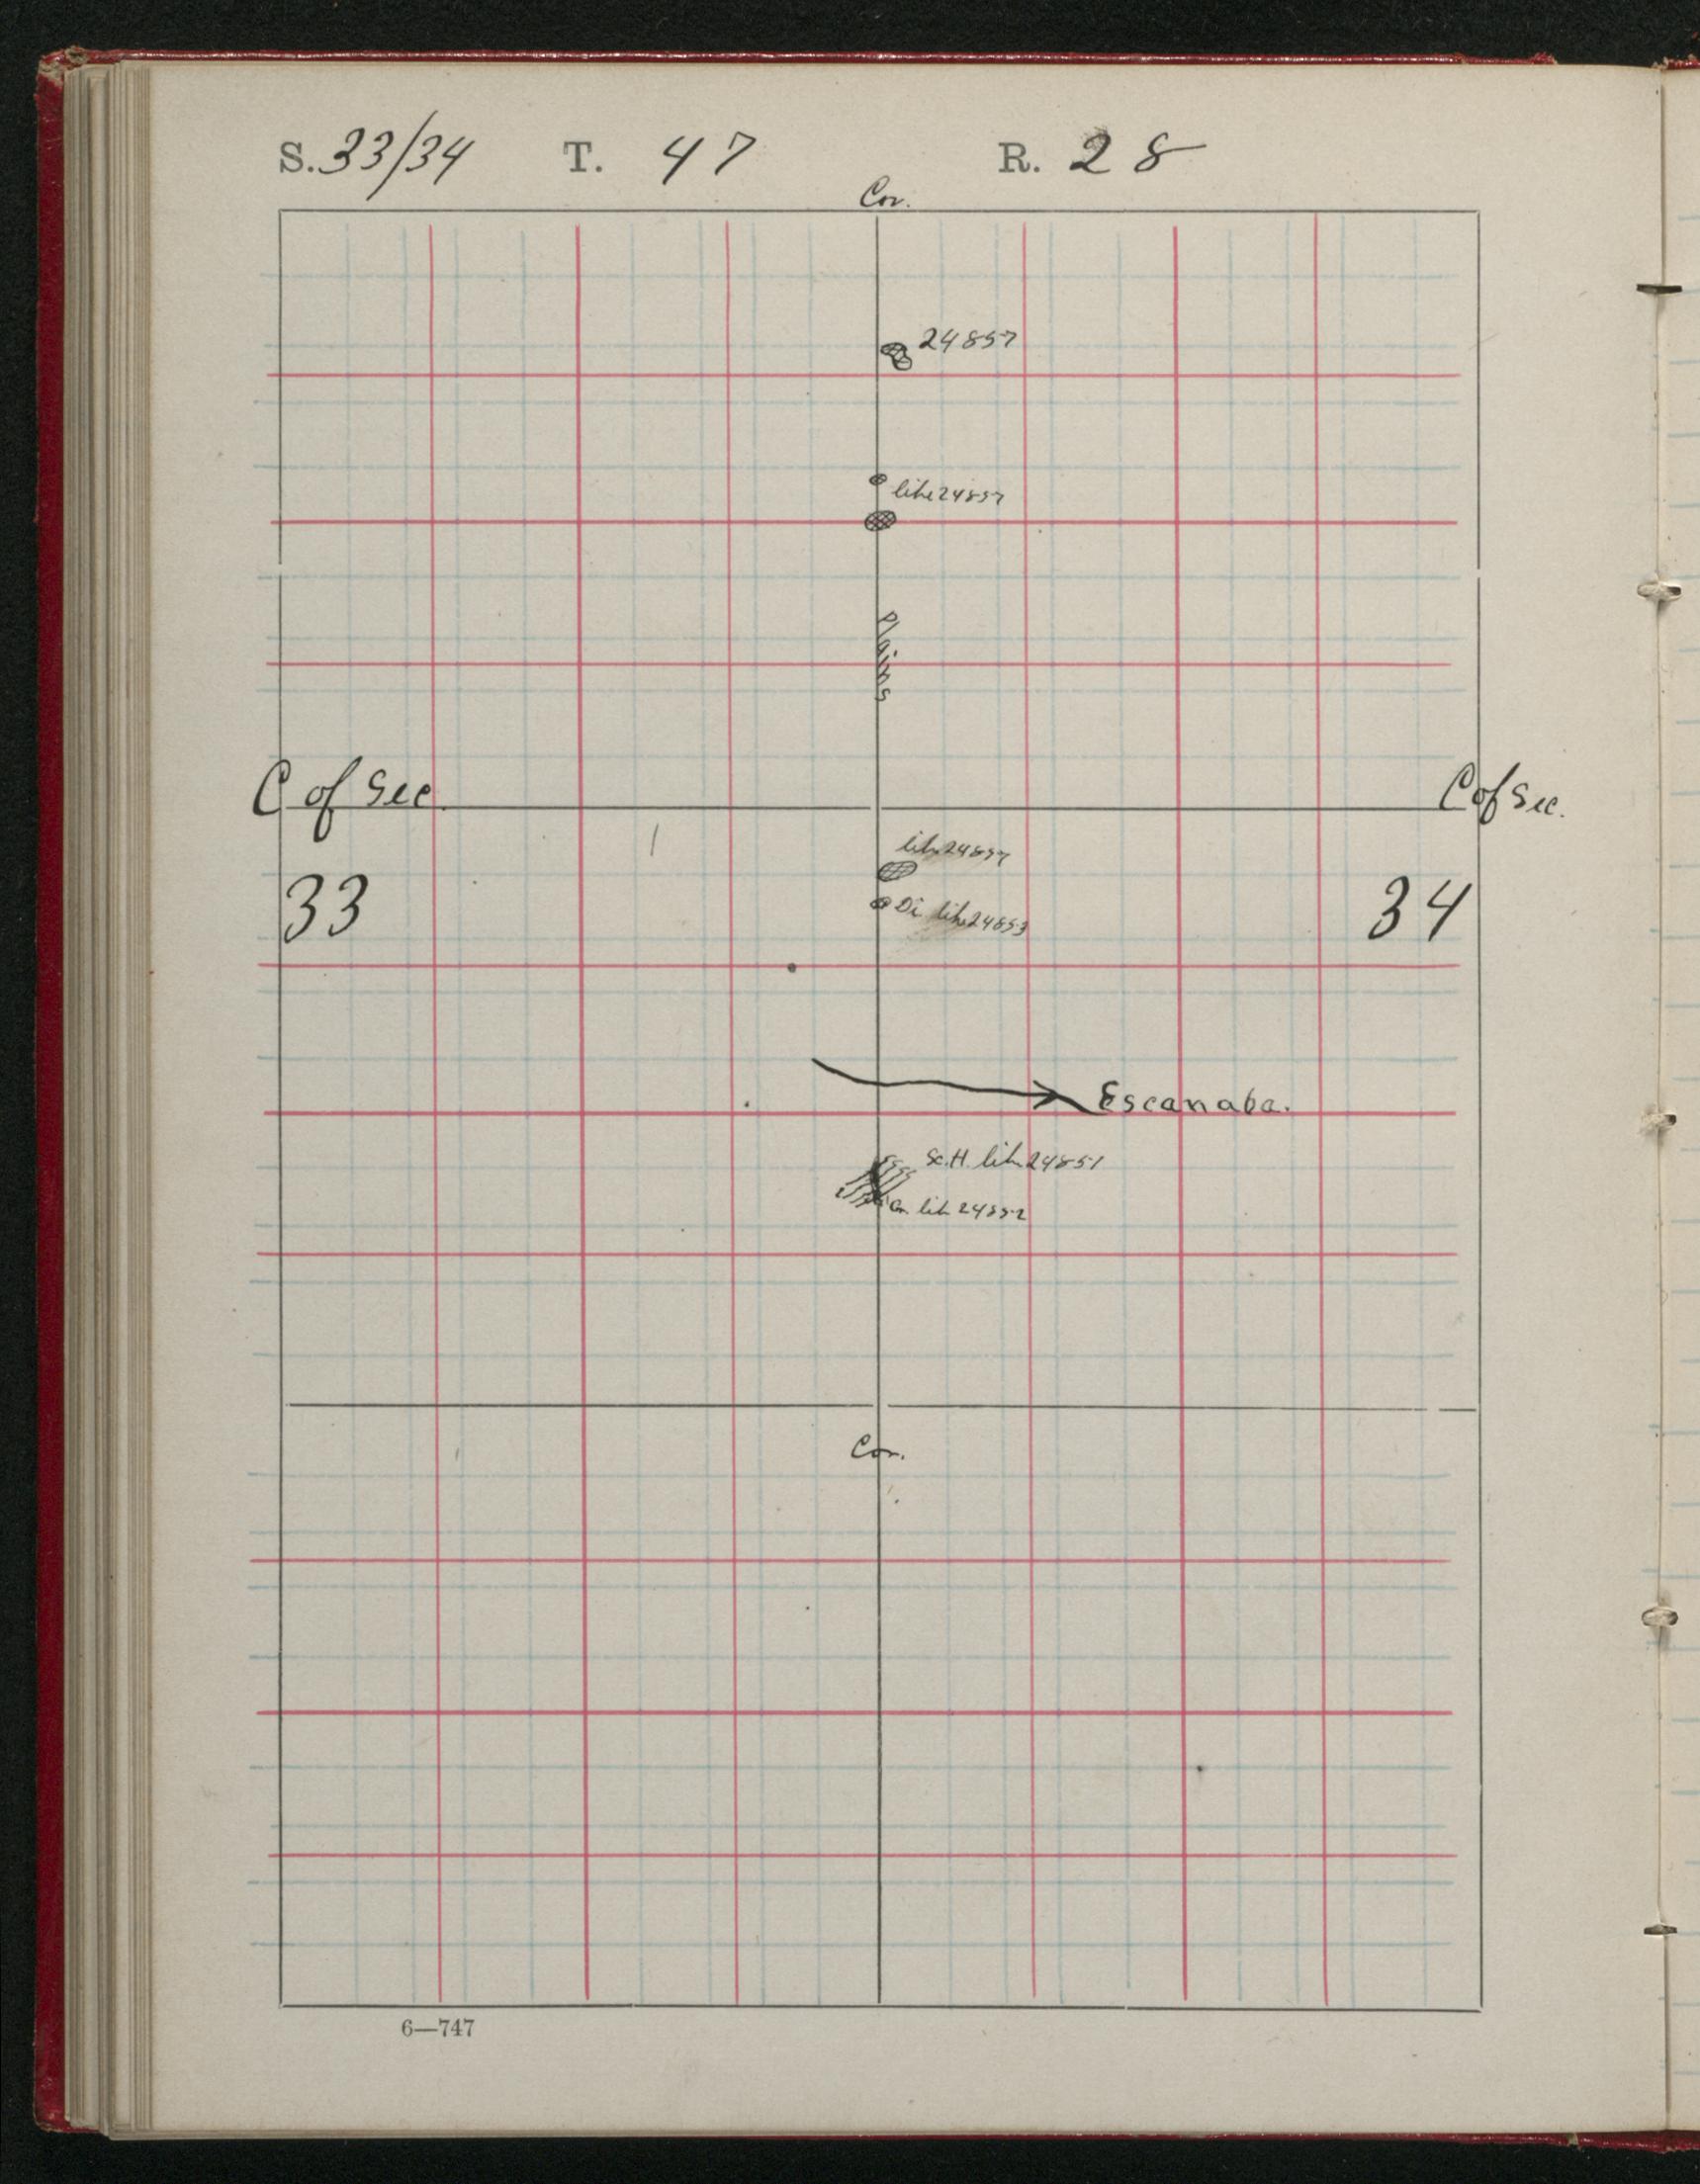 S. 33/34 T. 47 R. 28
Cor.
24857
like 24857
Plains
C of Sec. C of Sec.
like 24857
33 34
Di like 24853
Escanaba.
Sc. H. like 24851
Gn. like 24852
Cor.
6—747